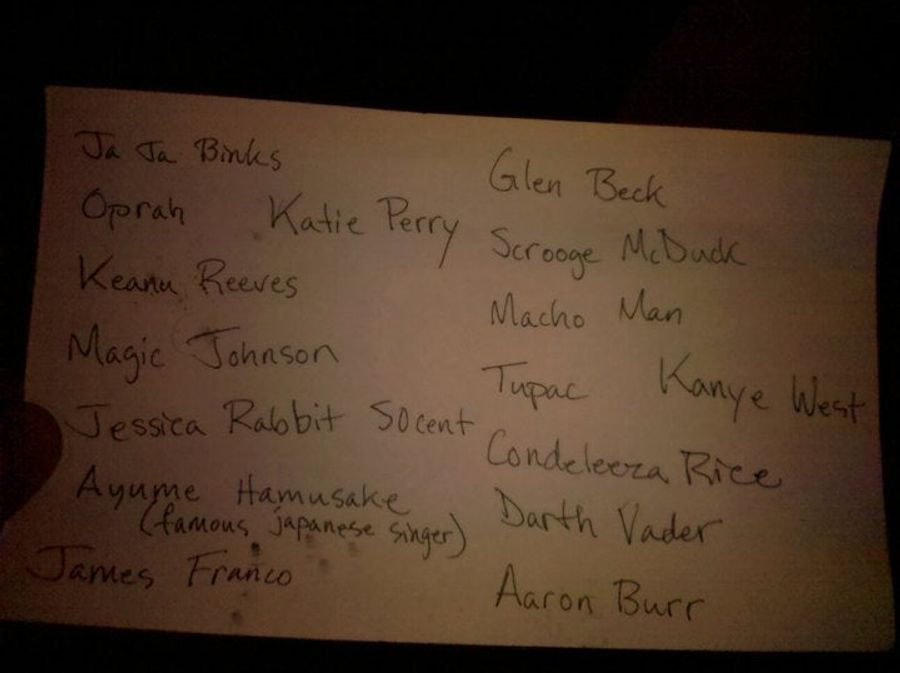 Ja Ja Binks
Oprah Katie Perry
Keanu Reeves
Magic Johnson
Jessica Rabbit 50cent
Ayume Hamusake
(famous japanese singer)
James Franco
Glen Beck
Scrooge McDuck
Macho Man
Tupac Kanye West
Condeleeza Rice
Darth Vader
Aaron Burr